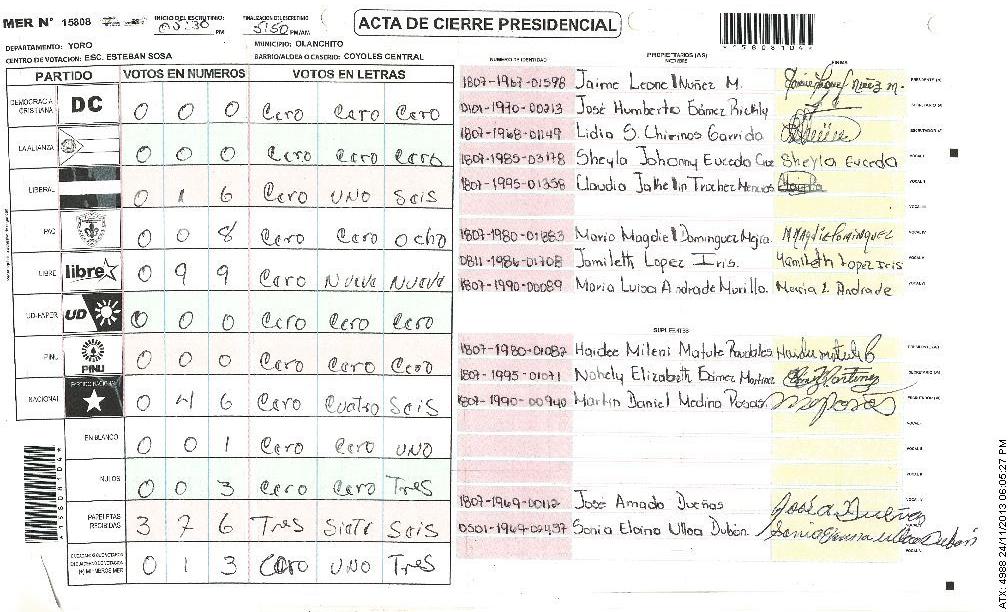 MER Nº 15808
INICIO DEL ESCRUTINIO
PM
FINALIZACION DEL ESCRUTINIO
5:50 PM/AM
ACTA DE CIERRE PRESIDENCIAL
DEPARTAMENTO: YORO
MUNICIPIO: OLANCHITO
CENTRO DE VOTACION: ESC. ESTEBAN SOSA
BARRIO/ALDEA O CASERIO: COYOLES CENTRAL
PARTIDO VOTOS EN NUMEROS VOTOS EN LETRAS
DEMOCRACIA CRISTIANA DC 0 0 0 Cero Cero Cero
LA ALIANZA 0 0 0 Cero Cero Cero
LIBERAL 0 1 6 Cero UNO Seis
PAC 0 0 8 Cero Cero Ocho
LIBRE libre 0 9 9 Cero Nueve Nueve
UD-FAPER UD 0 0 0 Cero Cero Cero
PINU PINU 0 0 0 Cero Cero Cero
NACIONAL PARTIDO NACIONAL 0 4 6 Cero Cuatro Seis
EN BLANCO 0 0 1 Cero Cero UNO
NULOS 0 0 3 Cero Cero Tres
PAPELETAS RECIBIDAS 3 7 6 Tres Siete Seis
0 1 3 Cero UNO Tres
NUMERO DE IDENTIDAD
PROPIETARIOS (AS)
NOMBRE
FIRMA
1807-1967-01598 Jaime Leonel Nuñez M. PRESIDENTE (A)
0101-1970-00213 José Humberto Gámez SECRETARIO (A)
1807-1968-01149 Lidia S. Chirinos Garrido ESCRUTADOR (A)
1807-1985-03178 Sheyla Johanny Euceda Sheyla Euceda VOCAL I
1807-1995-01358 Claudia VOCAL II
VOCAL III
1807-1980-01883 Mario Magdiel Dominguez Mejia. VOCAL IV
0811-1986-01708 Jamileth Lopez Iris. Yamileth Lopez Iris VOCAL V
1807-1990-00089 Maria Luisa Andrade Murillo. Maria L. Andrade VOCAL VI
SUPLENTES
1807-1980-01087 Haidee Mileni Matute PRESIDENTE (A)
1807-1995-01071 Nohely Elizabeth Gámez Martinez SECRETARIO (A)
1807-1990-00940 Martin Daniel Medina Posas ESCRUTADOR (A)
VOCAL I
VOCAL II
VOCAL III
1807-1969-00112 José Amado Dueñas José A Dueñas
Sonia Elaina Ulloa Dubón
ATX: 4988 24/11/2013 06:05:27 PM